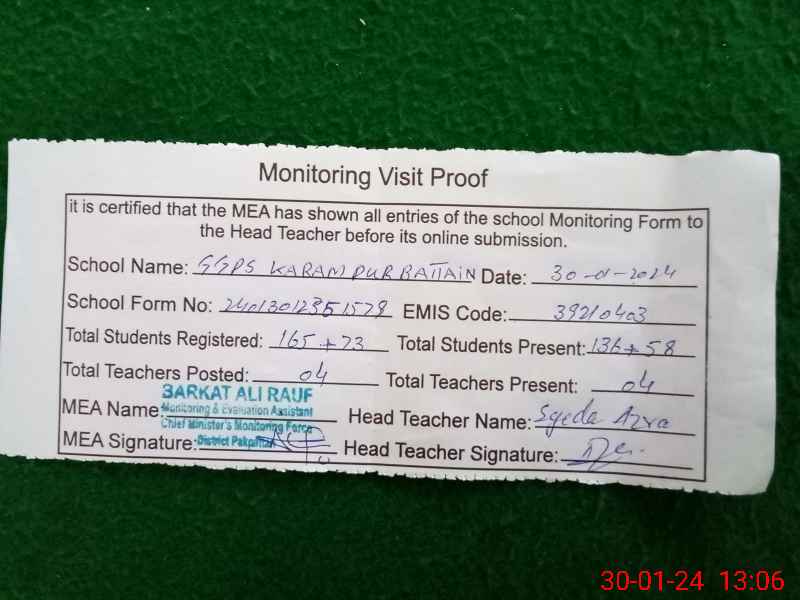 Monitoring Visit Proof
it is certified that the MEA has shown all entries of the school Monitoring Form to
the Head Teacher before its online submission.
School Name: GGPS KARAM PUR BATTAIN Date: 30-01-2024
School Form No: EMIS Code: 39210403
Total Students Registered: 165 + 73 Total Students Present: 136 + 58
Total Teachers Posted: 04 Total Teachers Present: 04
BARKAT ALI RAUF
MEA Name: Monitoring & Evaluation Assistant Head Teacher Name: Syeda Azra
Chief Minister's Monitoring Force
MEA Signature: District Head Teacher Signature:
30-01-24 13:06